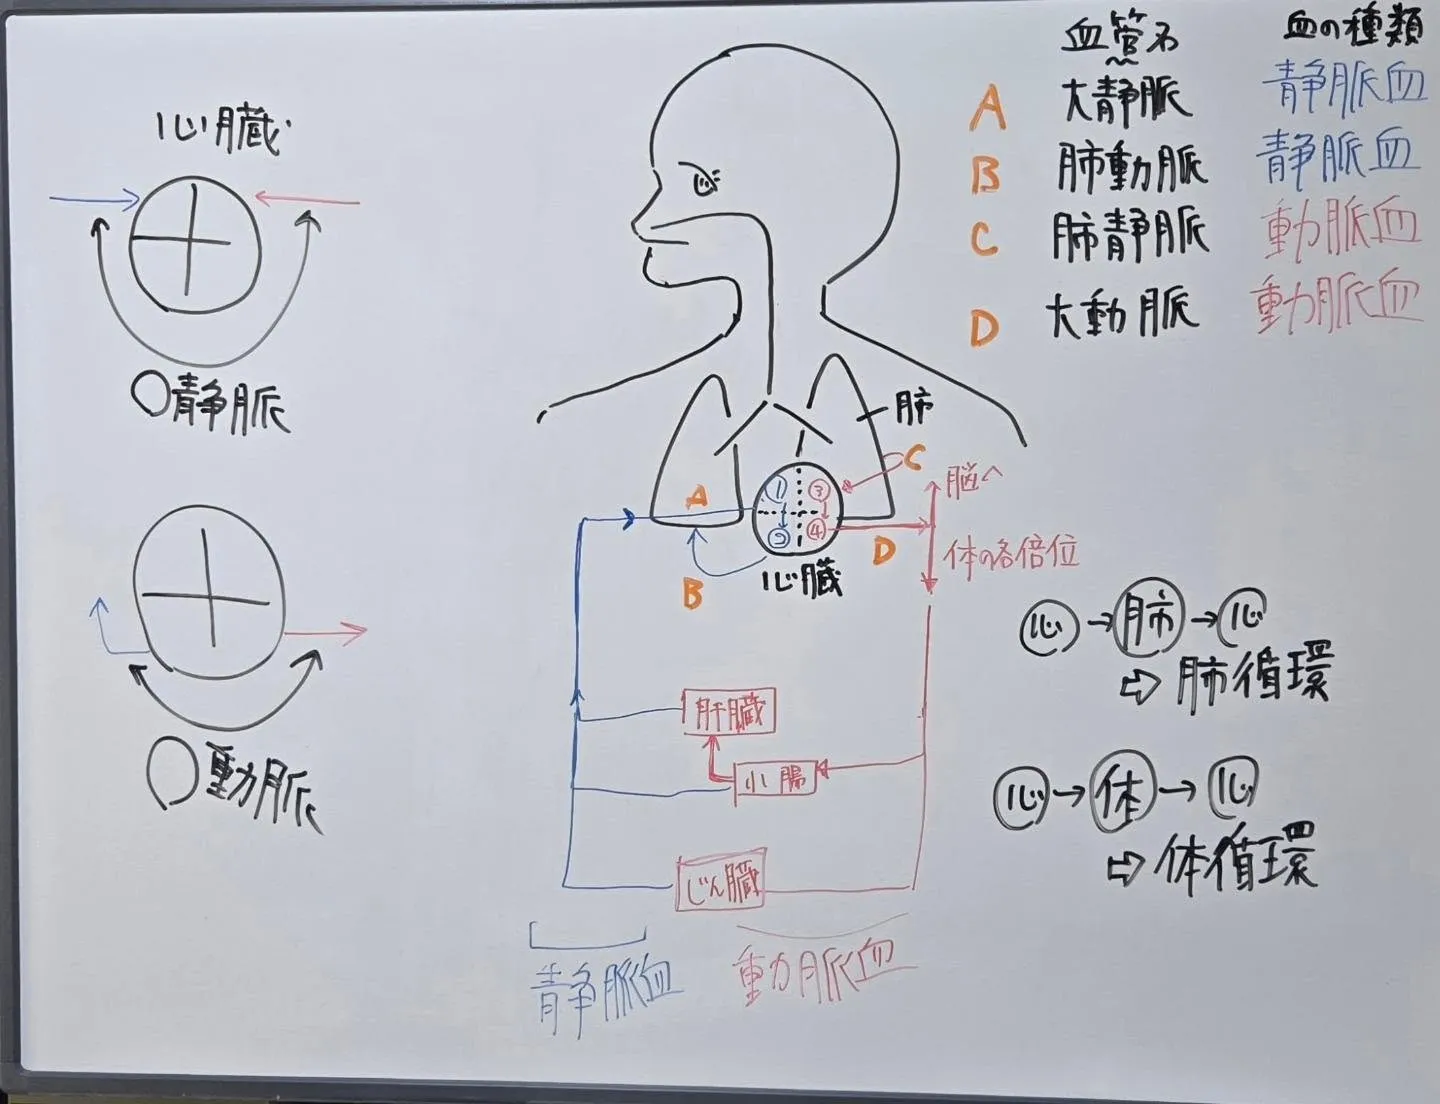 心臓
○静脈
○動脈
血管名 血の種類
A 大静脈 静脈血
B 肺動脈 静脈血
C 肺静脈 動脈血
D 大動脈 動脈血
肺
C
A
① ③
② ④
B
心臓
D
脳へ
体の各倍位
肝臓
小腸
じん臓
静脈血
動脈血
心→肺→心
⇨肺循環
心→体→心
⇨体循環